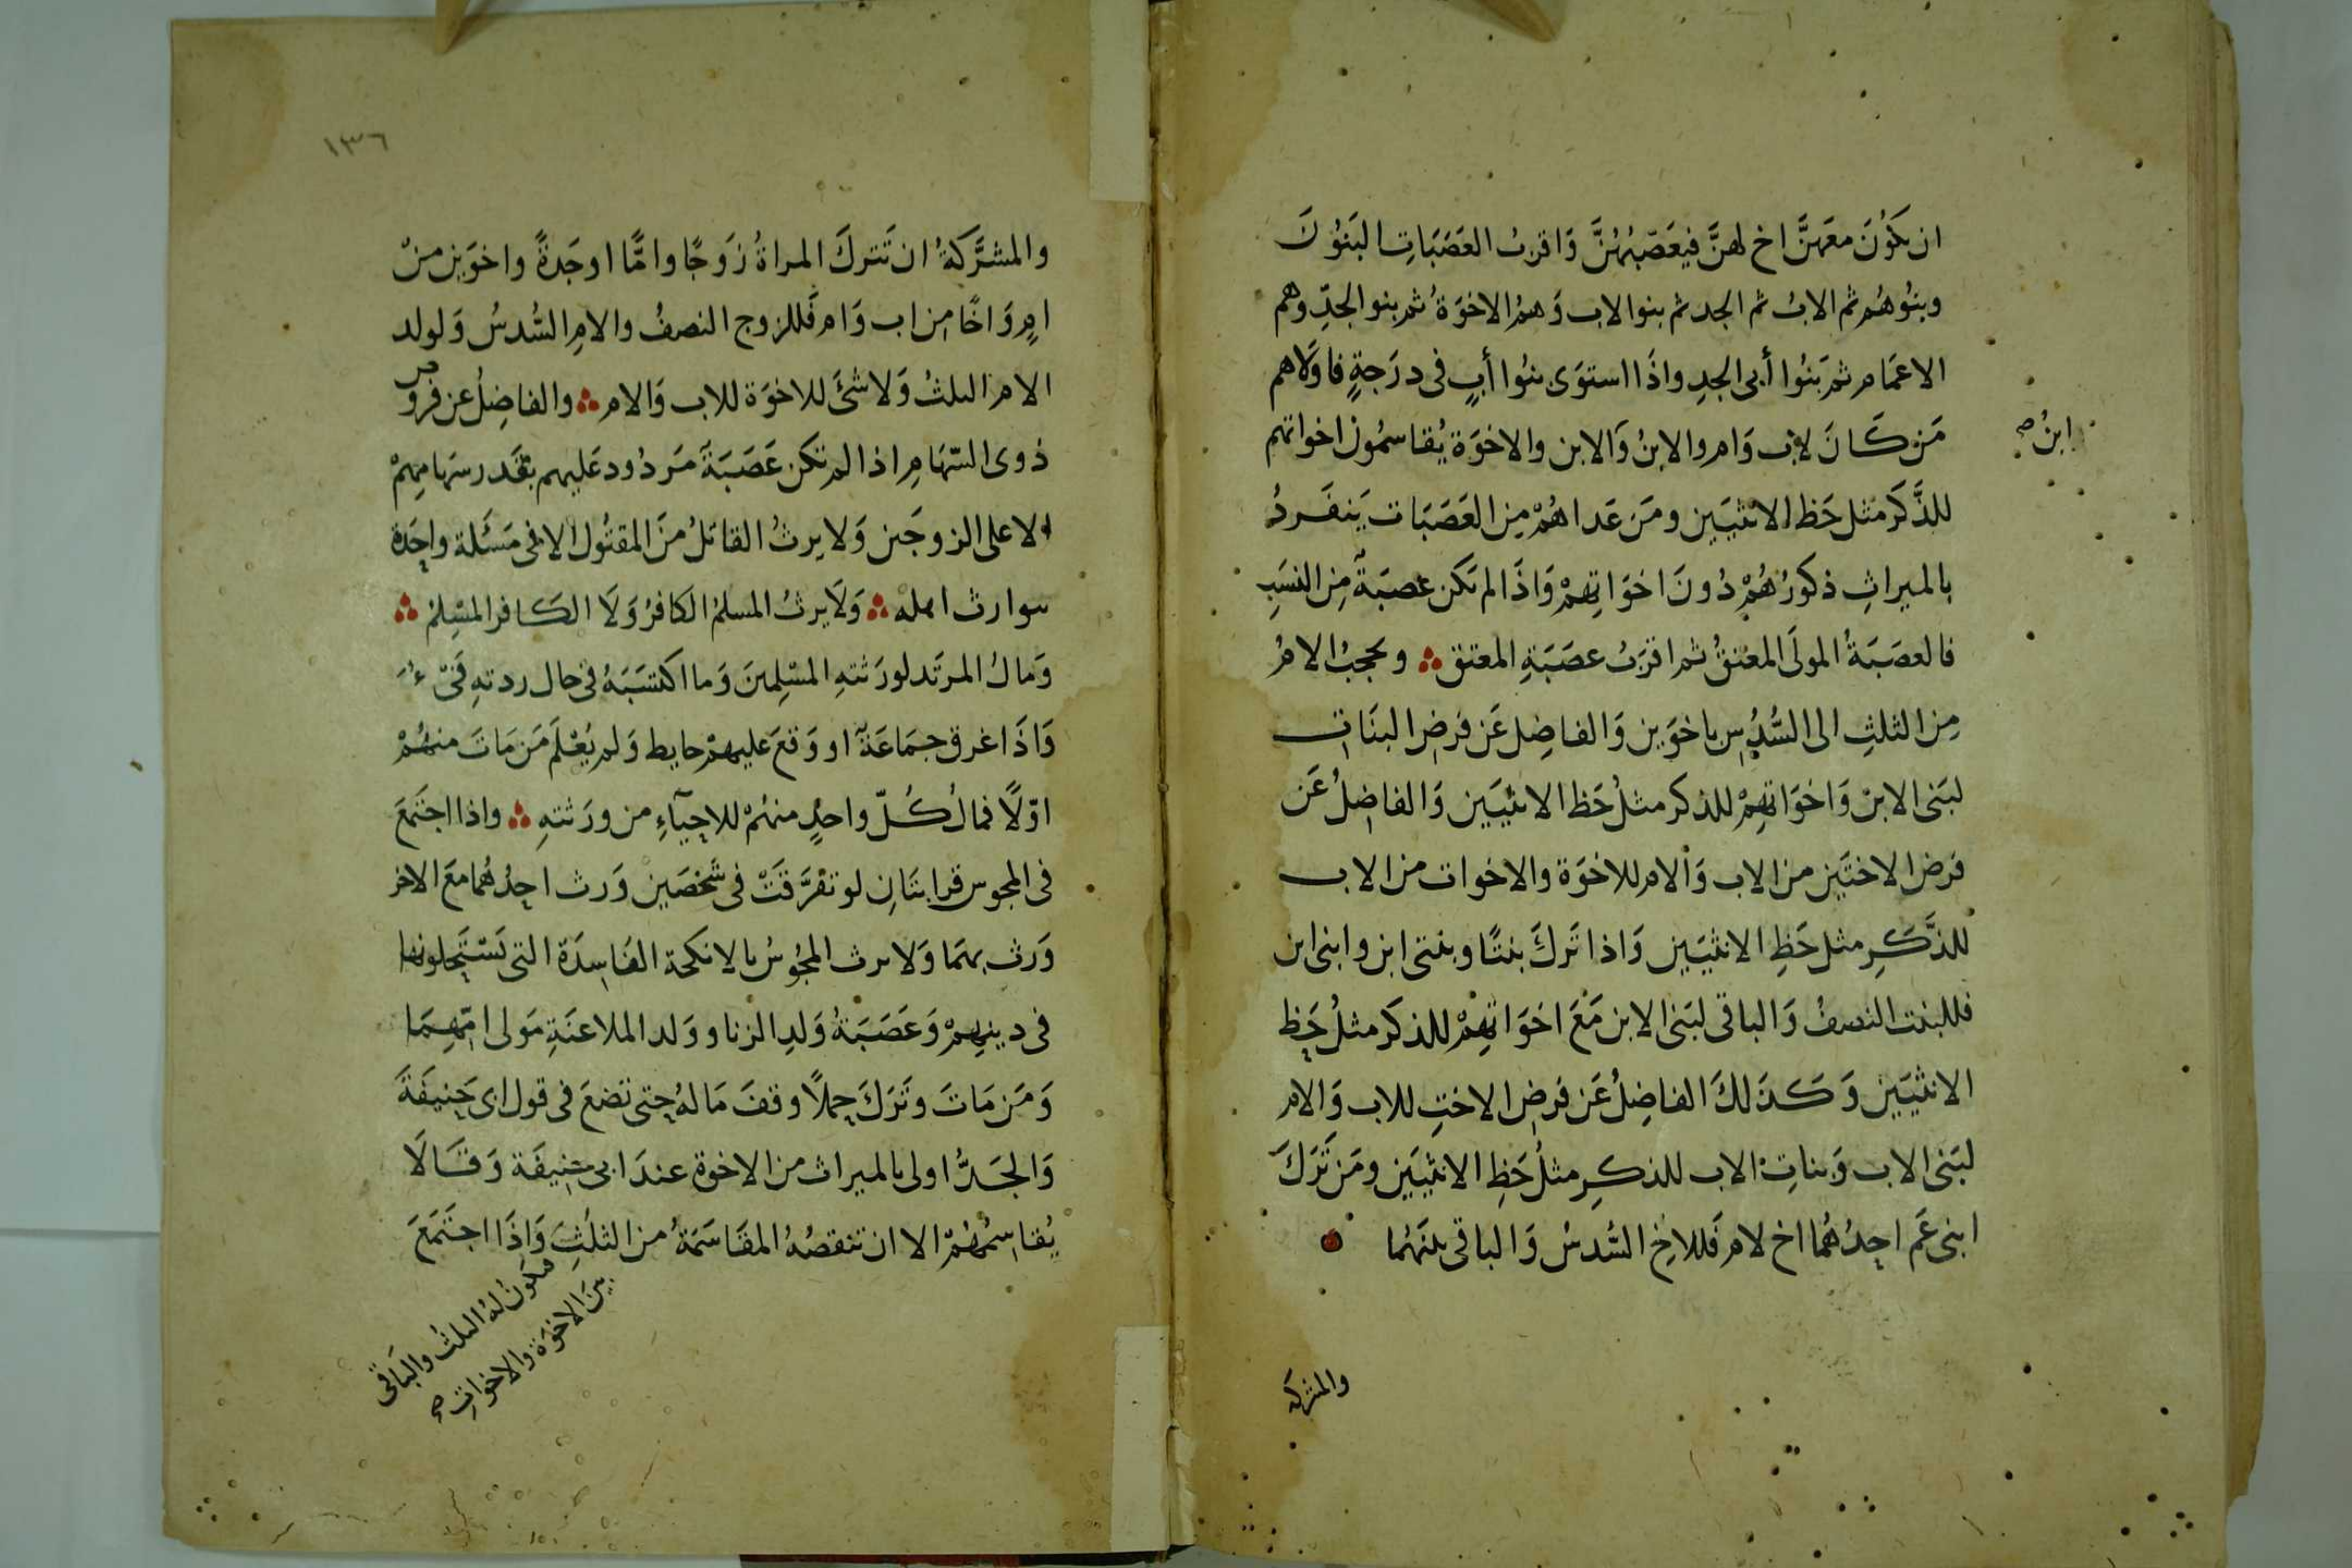 ان يكُوْنَ معَهنَّ اخ لهنَّ فيعَصّبُهُنَّ وَاقربُ العَصَبَاتِ البَنوُنَ
وبنُوهُم ثم الابُ ثم الجد ثم بنوا الاب وَهمُ الاخوَةُ ثم بنوا الجدِّ وهم
الاعمَام ثم بَنُوا أبى الجدِ واذَا استوَى بنُوا أبٍ فى درَجةٍ فاولَاهم
مَن كَانَ لابٍ وَام والابنُ وَالابن والاخوَة يُقاسمُون اخواتهم
ابنُ صح
للذَّكَر مثل حَظ الانثيَين ومَن عَداهُمْ مِن العَصَبَات يَنفَردُ
بالميراثِ ذكورُهُمْ دُونَ اخوَاتِهمْ وَاذَا لم تكن عصبَةٌ مِن النسَبِ
فالعصَبَةُ المولَى المعُتقُ ثم اقرَبُ عصَبَةِ المعتق ؞ ويحجبُ الامُ
مِن الثلثِ الى السُّدُسِ باخوَين وَالفاضِل عَن فرضِ البنَاتِ
لبَنى الابن وَاخوَاتهِمْ للذكر مثلُ حَظ الانثيَين وَالفاضِلُ عَن
فرض الاختَين من الاب وَالام للاخوَة والاخوات من الاب
للذَّكَرِ مثل حَظِ الانثيَين وَاذا تَركَ بنتًا وبنتى ابن وابنى ابن
فللبنت النصفُ وَالباقى لبَنى الابن مَعَ اخوَاتهِمْ للذكَر مثلُ حَظ
الانثيَين وَكَذلكَ الفاضِلُ عَن فَرضِ الاختِ للاب وَالام
لبَنى الاب وَبناتِ الاب للذكرِ مثلُ حَظِ الانثيَين ومَن تَرَكَ
ابنى عَم احدُهُما اخ لام فَللاخِ السُّدسُ وَالباقى بينَهُما
والمشركة
١٣٦
والمشرَّكةُ ان تَتركَ المراةُ زوَجًا وامًّا اوجَدةً واخوَين منْ
امٍ وَاخًا من اب وَام فَللزوج النصفُ وللامِ السُّدسُ وَلولد
الام الثلثُ وَلا شئَ للاخوَة للاب وَالام ؞ والفاضِلُ عن فروض
ذوى السّهَامِ اذا لم تكن عَصَبَةٌ مَردُود عَليهم بقَدر سهَامِهمْ
الا على الزوجَين وَلا يرثُ القاتلُ منَ المقتُول الا فى مَسئَلة واحِدَة
سوارث اهله ؞ وَلَا يرثُ المسلمُ الكافرُ وَلَا الكَافر المسْلِمُ ؞
وَمالُ المرتَد لورَثتهِ المسْلِمينَ وَما اكتسَبَهُ فى حال ردتهِ فَىْءٌ
وَاذَا غرق جمَاعَةٌ او وَقعَ عليهمْ حايط وَلم يُعْلَمَ مَن مَاتَ منهُمْ
اوّلًا فمالُ كُلّ واحدٍ منهُمْ للاحيَآءِ من ورَثتهِ ؞ واذا اجتَمعَ
فى المجوس قرابتَانِ لو تفرَّقتَ فى شخصَين وَرث احدُهُما معَ الاخر
وَرث بهمَا وَلا يرث المجُوسُ بالانكحَة الفَاسِدَة التى يَسْتَحِلونهَا
فى دينهِمْ وَعَصَبَةُ وَلدِ الزنا وولَد الملاعنَةِ مَولى امّهِمَا
وَمَن مَاتَ وتَرَكَ حملًا وقفَ مَالهُ حتى تضعَ فى قول ابى حَنيفَةَ
وَالجَدُّ اولى بالميراث من الاخوة عندَ ابى حنيفَة وَقَالَا
يُقاسِمُهُمْ الا ان تنقصُهُ المقَاسَمَةُ من الثلثِ وَاذَا اجتَمَعَ
فيكونُ لهُ الثلثُ والبَاقى
بينَ الاخوَة والاخواتِ صح